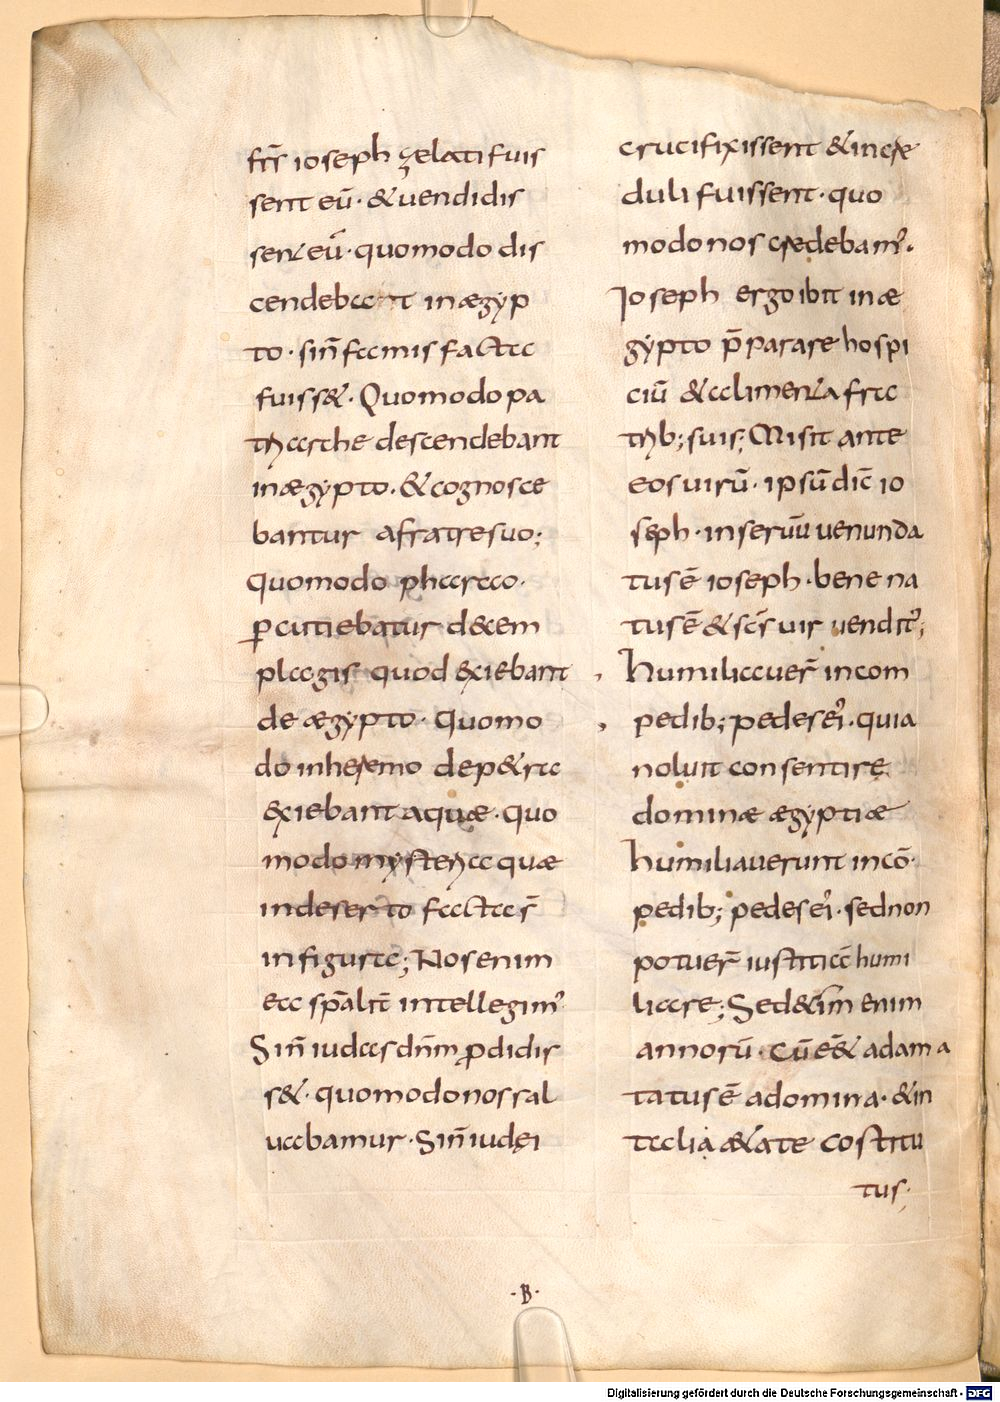 frs̄ ioseph zelati fuis
sent eū · & uendidis
sent eū · quomodo dis
cendebat in ægyp
to · sin̄ famis facta
fuiss& · Quomodo pa
triarche descendebant
in ægypto · & cognosce
bantur a fratre suo ;
quomodo pharao ·
ꝑcutiebatur decem
plagis quod exiebant
de ægypto · Quomo
do in heremo de petra
exiebant aquæ · quo
modo mysteria quæ
in deserto facta s̄
in figura ; Nos enim
ea sp̄alit̄ intellegim'
Sin̄ iudas dn̄m ꝓdidis
s& · quomodo nos sal
uabamur · Sin̄ iudei
crucifixissent & incre
duli fuissent · quo
modo nos credebam' ·
Ioseph ergo ibit in æ
gypto p̄parare hospi
ciū & alimenta fra
trib; suis ; Misit ante
eos uirū · ipsū dic̄ io
seph · in seruū uenunda
tus ē ioseph · bene na
tus ē & sc̄s uir uendit' ;
humiliauer̄ in com
pedib; pedes ei' · quia
noluit consentire
dominæ ægyptiæ
humiliauerunt in cō
pedib; pedes ei' · sed non
potuer̄ iustitiā humi
liare ; Sedecim enim
annorū · cū ē& adama
tatus ē a domina · & in
talia ætate costitu
tus ·
· B ·
Digitalisierung gefördert durch die Deutsche Forschungsgemeinschaft - DFG